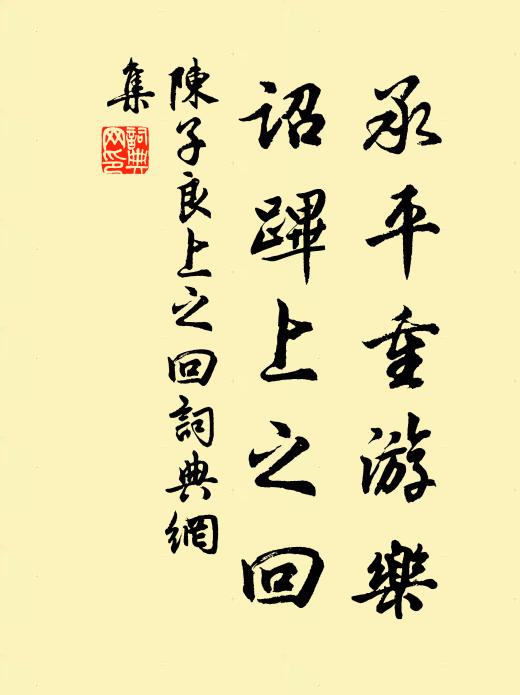 承平重游樂
詔蹕上之回
陳子良上之回詞典網
集
詞典網印